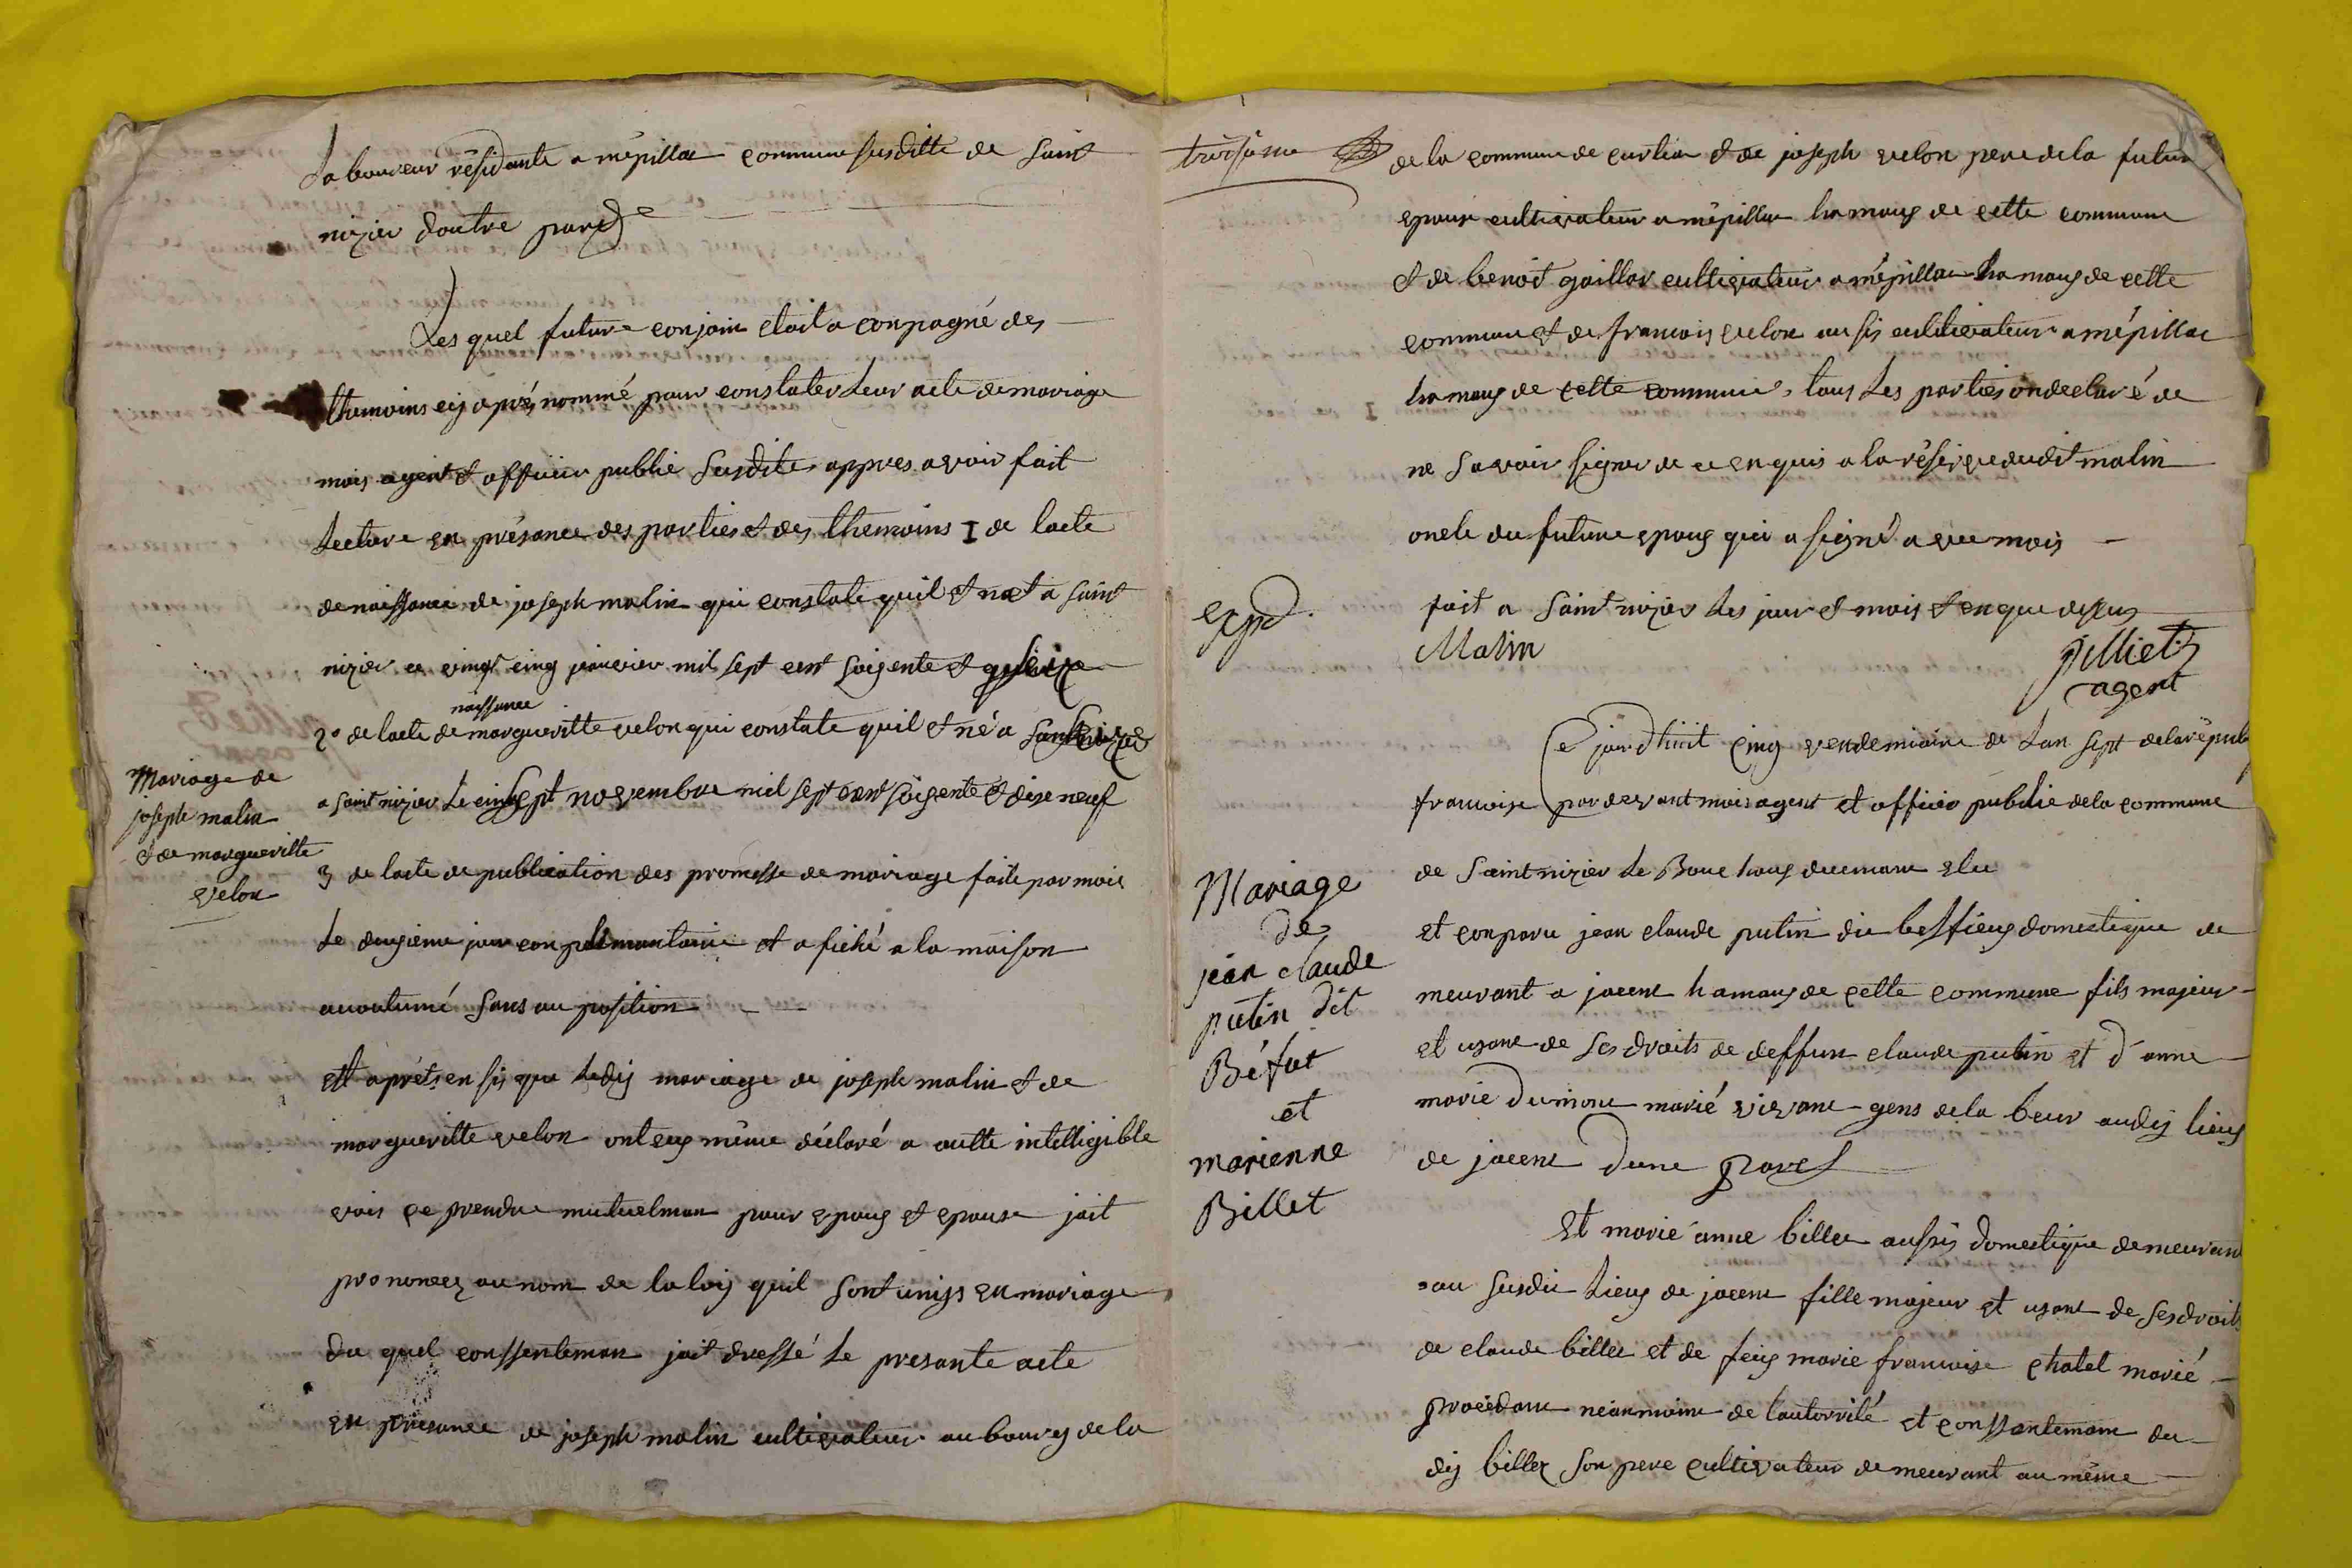 Laboureur résidante a mépillat commune susditte de saint
nizier doutre pard
Les quel future conjoin etoit a conpagné des
themoins cij aprés nommé pour constater leur acte de mariage
mois agent et officier public susdite appres avoir fait
Lecture en présance des parties et des themoins I de lacte
de naissance de joseph malin qui constate quil et naet a saint
nizier ce vingt cinq janvier mil sept cent soigente et seize
naissance
2° de lacte de margueritte velon qui constate quil et né a saint nizier
Mariage de
joseph malin
et de margueritte
velon
a saint nizier Le cinq sept novembre mil sept cent soigente et dise neuf
3 de lacte de publication des promesse de mariage faite par mois
Le deusieme jour conplemantaire et a fiché a la maison
acoutumé sans au position
Et aprét en sis que Ledij mariage de joseph malin et de
margueritte velon ont eus même déclaré a autte intelligible
vois ce prendre mutuelman pour epous et epouse jait
prononcez au nom de la lois quil sont unijs en mariage
du quel conssenteman jait dressé Le presante acte
en présance de joseph malin cultivateur au bourg de la
troisieme
de la commune de curtia et de joseph velon pere de la future
epouse cultivateur a mépillat hamaus de cette commune
et de benoit gaillar cultivateur a mépillat hamaus de cette
commune et de francois velon au sis cultivateur a mépillat
hamaus de cette commune, tous Les parties on declaré de
ne savoir signer de ce enquis a la réserve dudit malin
oncle du future epous qui a signé avec mois
expd.
fait a saint nizier Les jour et mois et en que dessus
Malin
pilliet
agent
Ce jourdhuit cinq vendemiaire de Lan sept de la répub
francoise par devant mois agent et officier public de la commune
de saint nizier Le Bouchoux duemant elu
Mariage
de
jean claude
putin dit
Béfat
et
marienne
Billet
et conparu jean claude putin dit beffieux domestique de
meurant a jacent hamaus de cette commune fils majeur
et usant de ses droits de deffunt claude putin et d'anne
marie dumont marié vivant gens de la beur audij lieus
de jacent dune part
Et marie anne billet aussis domestique demeurant
au susdit Lieus de jacent fille majeur et usant de ses droits
de claude billet et de feus marie francoise chatel marié
procédant néanmoins de lautorrité et conssantemant du
dij billet son pere cultivateur demeurant au même